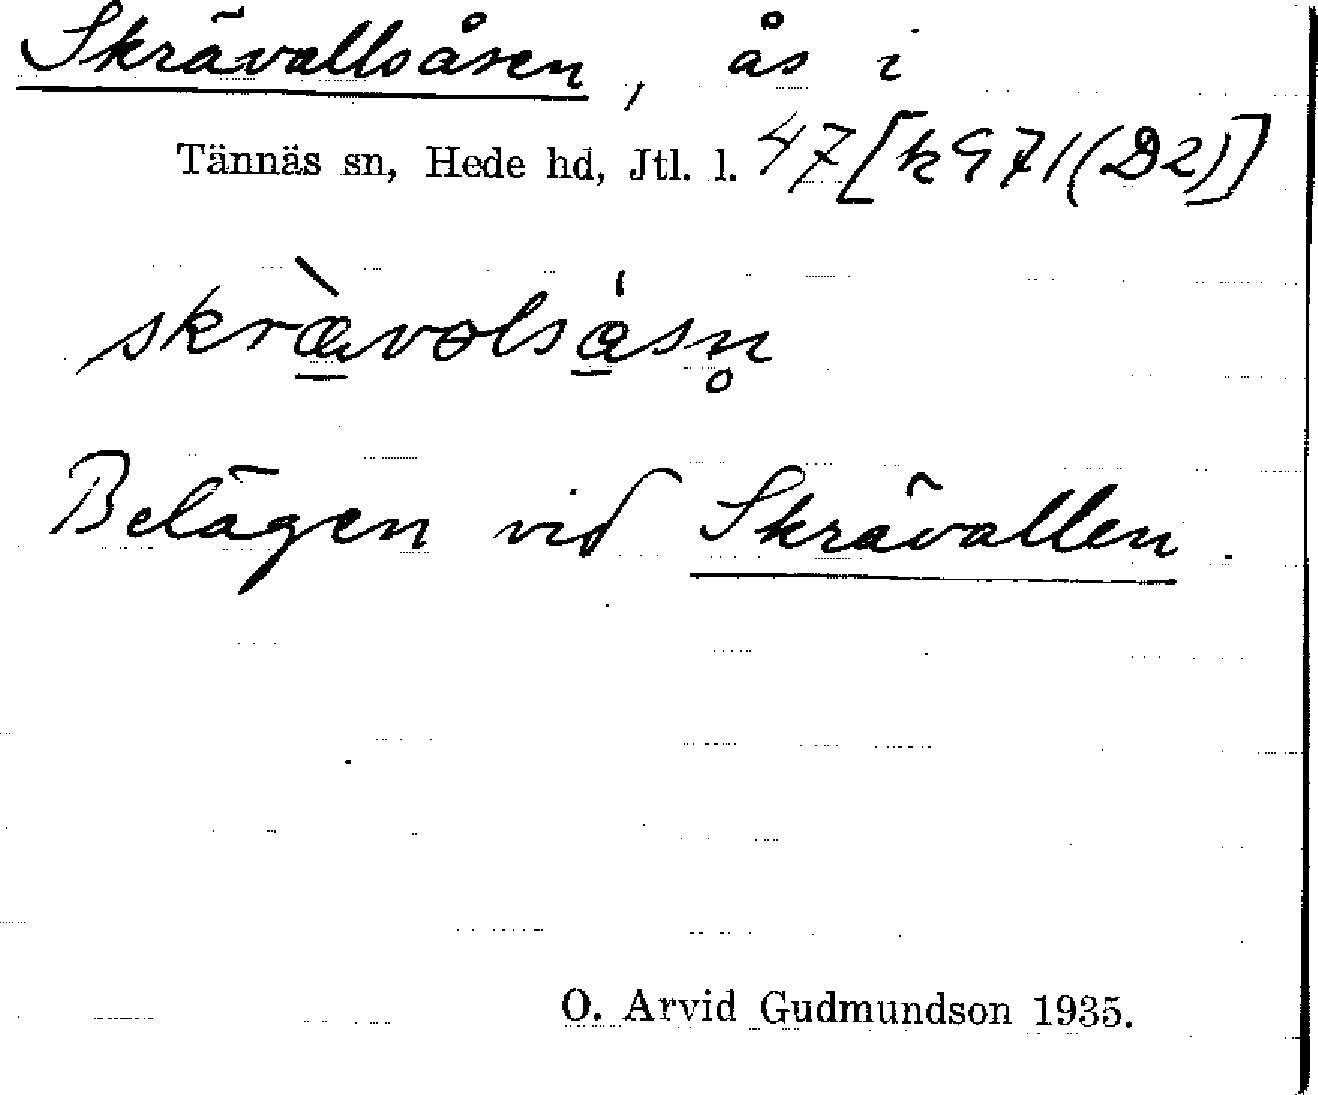 Skrävallsåsen, ås i
Tännäs sn, Hede hd, Jtl. l. 47[k971(D2)]
skræ̀vɷlsásn̥
Belägen vid Skrävallen.
O. Arvid Gudmundson 1935.